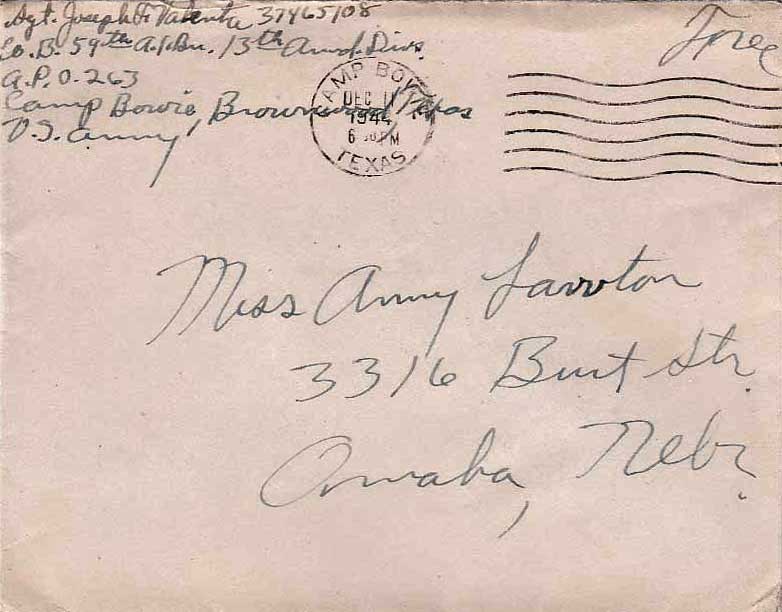 Sgt. Joseph F. Valenta 37465108
Co. B. 59th A.I.Bn. 13th Armd. Div.
A.P.O. 263
Camp Bowie, Brownwood, Texas
U.S. Army
Free
CAMP BOWIE
DEC 11
1944
PM
TEXAS
Miss Anny
3316 Burt Str.
Omaha, Nebr.